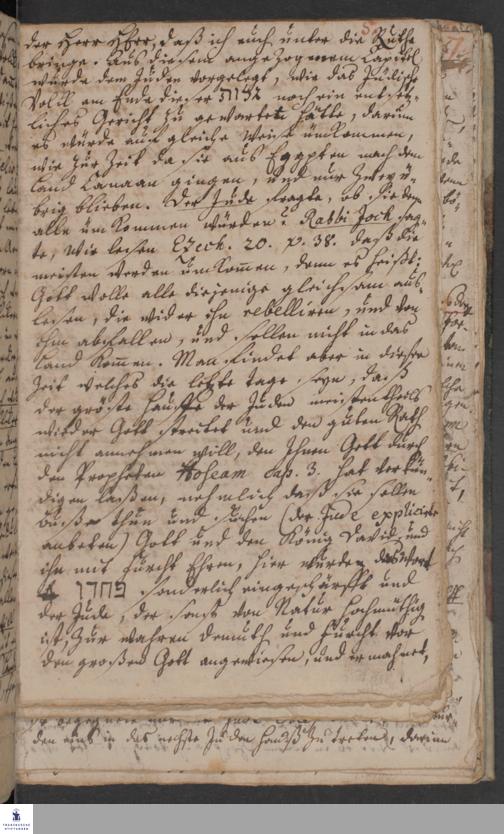 der Herr Herr, daß ich euch unter die Ruthe
bringe. Aus diesem angezogenem Capitel
wurde dem Juden vorgelegt, wie das Jüdische
Volck am Ende dieser גלות noch ein entsetz-
liches Gericht zu gewarten hätte, darum
es würde auf gleiche Weise umkommen,
wie zur Zeit da sie aus Egypten nach dem
Land Canaan gingen, und nur zwey ü-
brig blieben. Der Jude fragte, ob sie denn
alle umkommen würden? Rabbi Joch. sag-
te, wir lesen Ezech. 20. v. 38. daß die
meisten werden umkommen, denn es heißt:
Gott wolle alle diejenige gleichsam aus-
lesen, die wider ihn rebelliren, und von
ihm abfallen, und sollen nicht in das
Land kommen. Man findet aber in dieser
Zeit welches die letzte Tage seyn, daß
der gröste Hauffe der Juden meistentheils
wieder Gott streitet und den guten Rath
nicht annehmen will, den Ihnen Gott durch
den Propheten Hoseam Cap. 3. hat verkün-
digen laßen, nehmlich daß sie sollen
Buße thun und suchen (der Jude explicirte
anbeten) Gott und den König David und
ihn mit Furcht Ehren, hier wurde das Wort
פחדו sonderlich eingeschärfft und
der Jude, der sonst von Natur hochmüthig
ist, zur wahren Demuth und Furcht vor
den großen Gott angewiesen, und ermahnet,
den eins in das nechste Juden Hauß zu tretten, darinn
FRANCKESCHE STIFTUNGEN